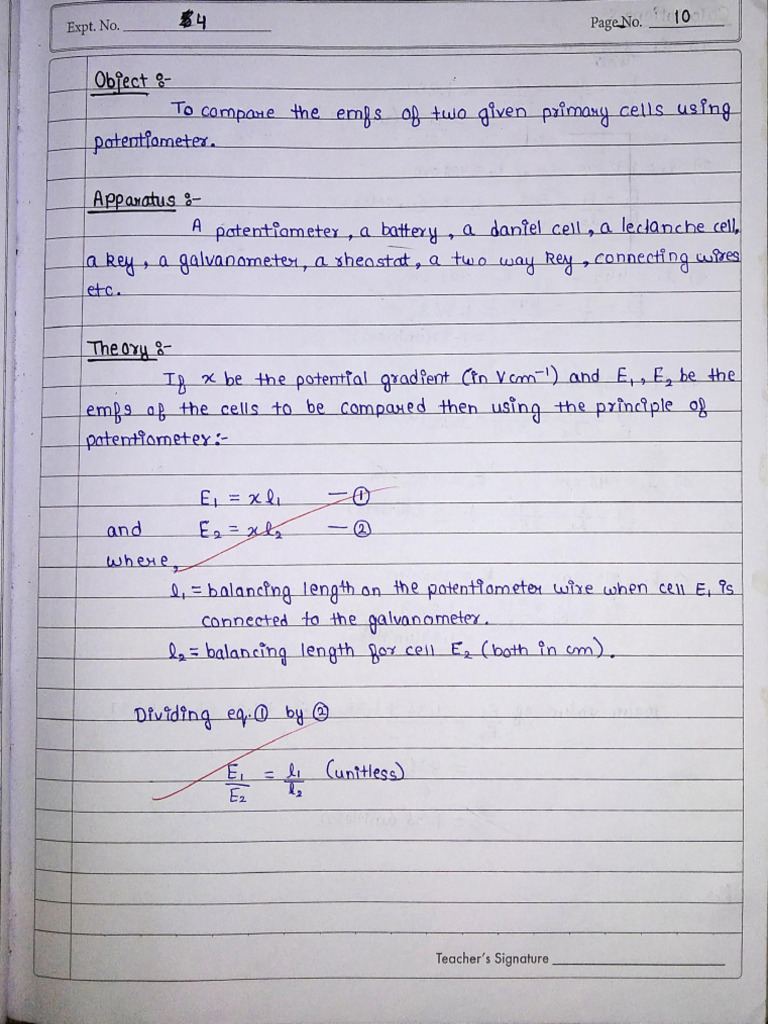 Expt. No. 4
Page No. 10
Object :-
To compare the emfs of two given primary cells using
potentiometer.
Apparatus :-
A potentiometer, a battery, a daniel cell, a leclanche cell,
a key, a galvanometer, a rheostat, a two way key, connecting wires
etc.
Theory :-
If x be the potential gradient (in V cm⁻¹) and E₁, E₂ be the
emfs of the cells to be compared then using the principle of
potentiometer:-
E₁ = x l₁ — ①
and E₂ = x l₂ — ②
where,
l₁ = balancing length on the potentiometer wire when cell E₁ is
connected to the galvanometer.
l₂ = balancing length for cell E₂ (both in cm).
Dividing eq. ① by ②
E₁/E₂ = l₁/l₂ (unitless)
Teacher's Signature